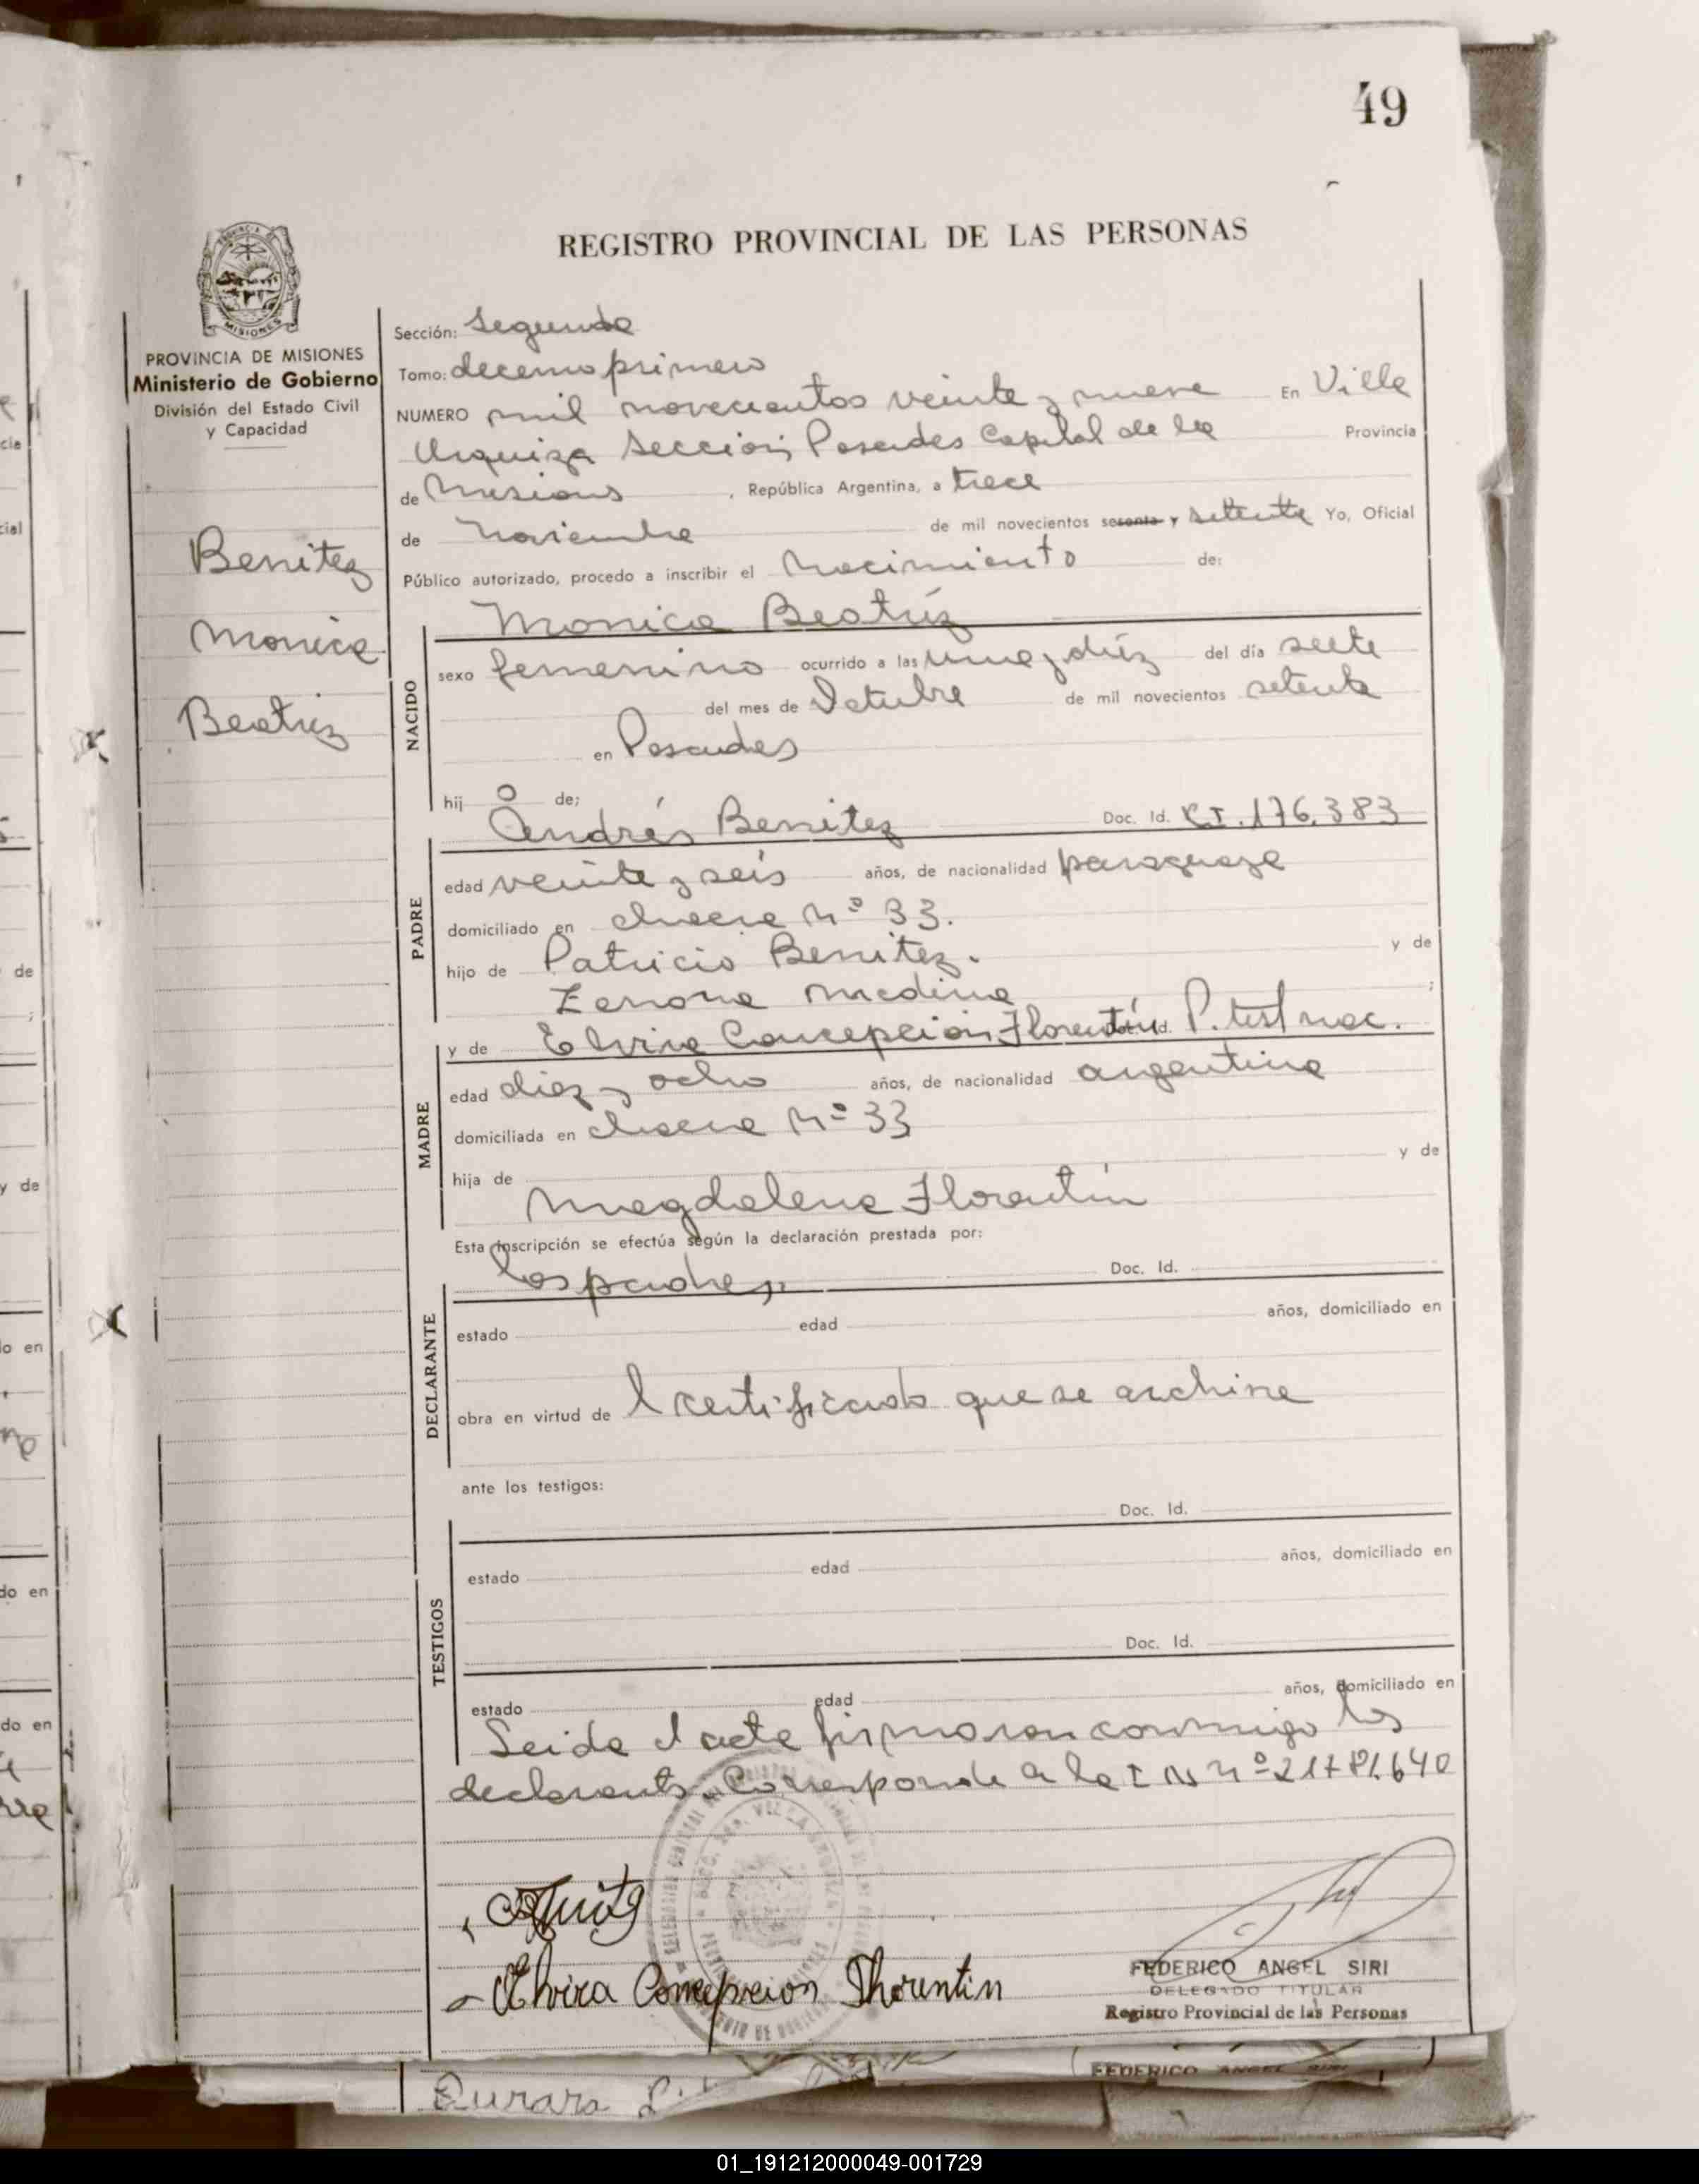 49
REGISTRO PROVINCIAL DE LAS PERSONAS
MISIONES
PROVINCIA DE MISIONES
Ministerio de Gobierno
División del Estado Civil
y Capacidad
Benitez
Monica
Beatriz
Sección: Segunda
Tomo: decemo primero
NUMERO mil novecientos veinte y nueve En Villa
Urquiza Sección Posadas Capital de la Provincia
de Misiones, República Argentina, a trece
de Noviembre de mil novecientos sesenta y setenta Yo, Oficial
Público autorizado, procedo a inscribir el Nacimiento de:
NACIDO
Monica Beatríz
sexo femenino ocurrido a las una y diéz del día siete
del mes de Octubre de mil novecientos setenta
en Posadas
hij a de;
PADRE
Andrés Benitez Doc. Id. CI. 176.383
edad veinte y seis años, de nacionalidad paraguaya
domiciliado en chacra Nº 33.
hijo de Patricio Benitez. y de
Zenona Medina ;
MADRE
y de Elvira Concepción Florentín Doc. Id. P. test nac.
edad diez y ocho años, de nacionalidad argentina
domiciliada en chacra Nº 33
hija de y de
Magdalena Florentín
Esta inscripción se efectúa según la declaración prestada por:
DECLARANTE
los padres. Doc. Id.
estado edad años, domiciliado en
obra en virtud de l certificado que se archiva
ante los testigos:
Doc. Id.
TESTIGOS
estado edad años, domiciliado en
Doc. Id.
estado edad años, domiciliado en
Leida el acta firmaron conmigo los
declarants. Corresponde a la I N Nº 21781.640
Elvira Concepcion Florentin
FEDERICO ANGEL SIRI
DELEGADO TITULAR
Registro Provincial de las Personas
FEDERICO ANGEL SIRI
01_191212000049-001729